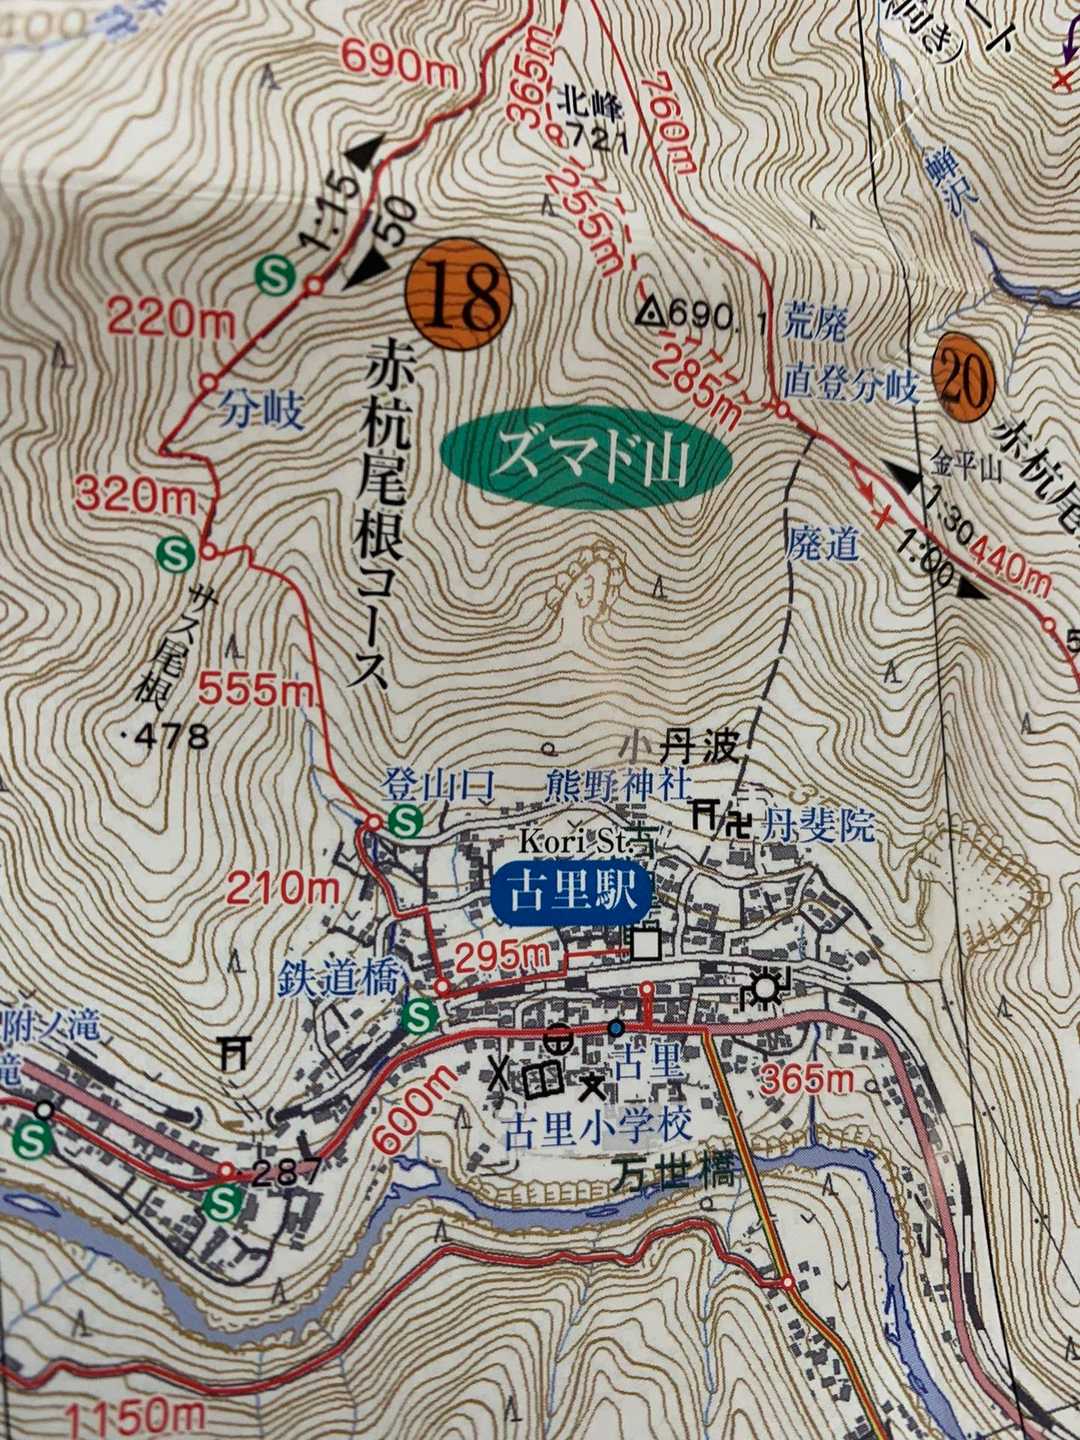 400
690m
365m
北峰
721
760m
向き)
ート
蝉沢
1:15
50
255m
S
220m
18
690.1
荒廃
直登分岐
20
分岐
285m
赤杭尾根コース
ズマド山
金平山
赤杭尾
320m
1:30
1:00
440m
S
廃道
サス尾根
555m
478
5
小丹波
登山口
熊野神社
S
丹斐院
Kori St.
古里駅
210m
295m
鉄道橋
S
附ノ滝
滝
古里
365m
600m
古里小学校
S
287
S
万世橋
1150m